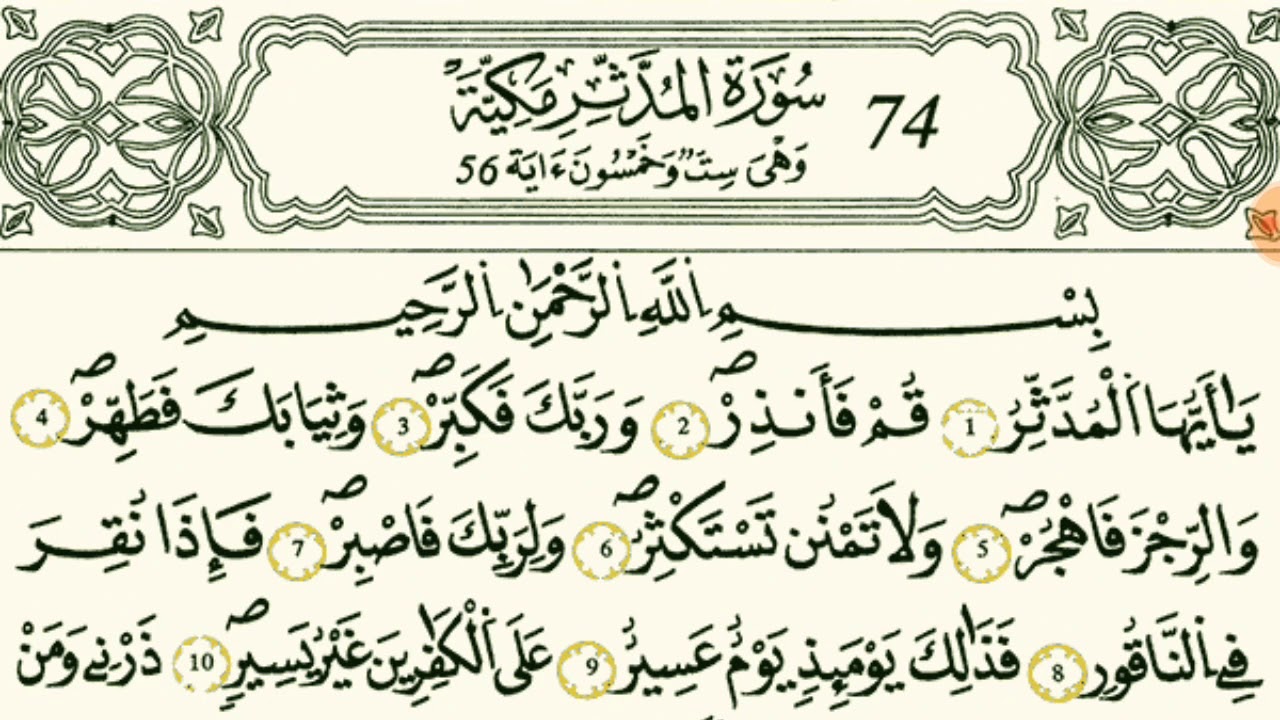 سُورَةُ المُدَّثِّرِ مَكِيَّةٌ 74
وَهْىَ سِتٌّ وَخَمْسُونَ ءَايَةً 56
بِسْمِ اِ۬للَّهِ اِ۬لرَّحْمَٰنِ اِ۬لرَّحِيمِ
يَٰأَيُّهَا اَ۬لْمُدَّثِّرُ 1 قُمْ فَأَنذِرْ صـ 2 وَرَبَّكَ فَكَبِّرْ صـ 3 وَثِيَابَكَ فَطَهِّرْ صـ 4
وَالرِّجْزَ فَاهْجُرْ صـ 5 وَلَا تَمْنُن تَسْتَكْثِرُ صـ 6 وَلِرَبِّكَ فَاصْبِرْ صـ 7 فَإِذَا نُقِرَ
فِے اِ۬لنَّاقُورِ 8 فَذَٰلِكَ يَوْمَئِذٖ يَوْمٌ عَسِيرٌ 9 عَلَى اَ۬لْكَٰفِرِينَ غَيْرُ يَسِيرٖ صـ 10 ذَرْنِے وَمَنْ